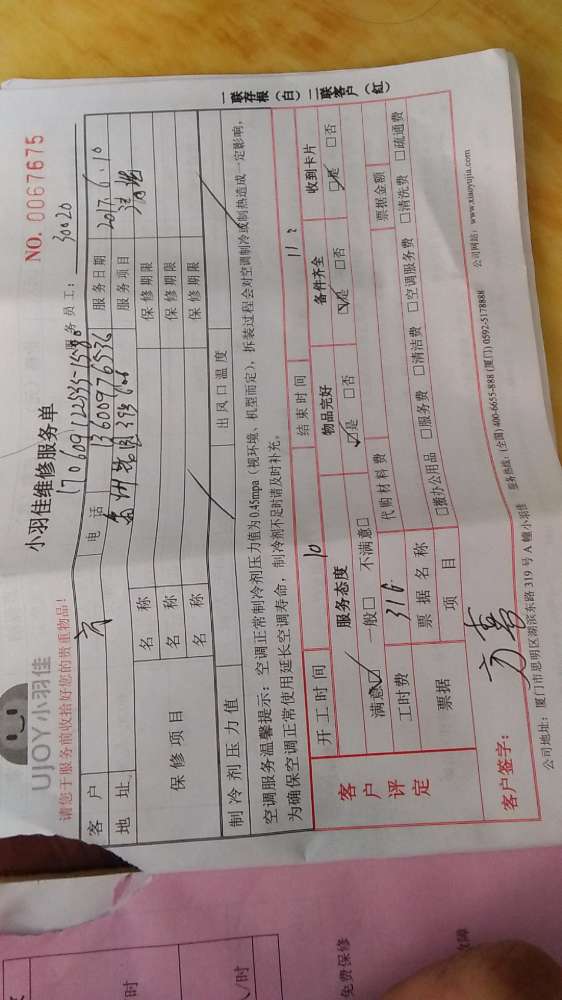 UJOY小羽佳
小羽佳维修服务单
NO. 0067675
请您于服务前收拾好您的贵重物品!
服务员工: 30020
客户 方 电话 13600976532 服务日期 2017.6.10
地址 服务项目
保修项目
名称 保修期限
名称 保修期限
名称 保修期限
制冷剂压力值 出风口温度
空调服务温馨提示: 空调正常制冷剂压力值为0.45mpa (视环境、机型而定), 拆装过程会对空调制冷或制热造成一定影响,
为确保空调正常使用延长空调寿命, 制冷剂不足时请及时补充。
客户评定
开工时间 10 结束时间 11:
服务态度 物品完好 备件齐全 收到卡片
满意☑ 一般□ 不满意□ ☑是 □否 ☑是 □否 ☑是 □否
工时费 316 代购材料费 票据金额
票据 票据名称
项目 □搬办公用品 □服务费 □清洁费 □空调服务费 □清洗费 □疏通费
客户签字:
公司地址: 厦门市思明区湖滨东路 319 号 A 幢小羽佳 服务热线: (全国) 400-6655-888 (厦门) 0592-5178888 公司网站: www.xiaoyujia.com
一联存根(白) 二联客户(红)
时
/时
免费保修
故障